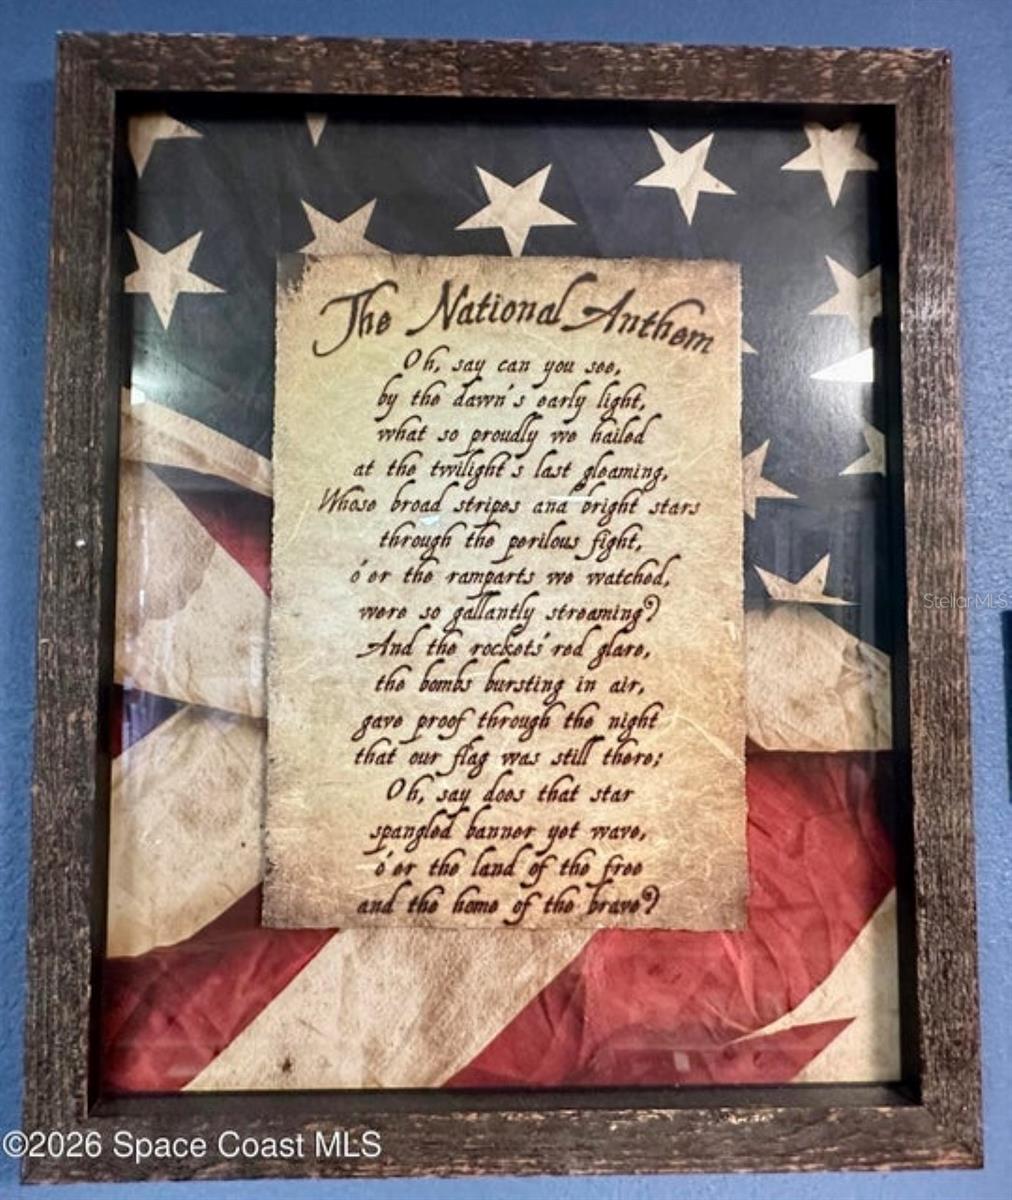 The National Anthem
Oh, say can you see,
by the dawn's early light,
what so proudly we hailed
at the twilight's last gleaming,
Whose broad stripes and bright stars
through the perilous fight,
o'er the ramparts we watched,
were so gallantly streaming?
And the rockets' red glare,
the bombs bursting in air,
gave proof through the night
that our flag was still there;
Oh, say does that star
spangled banner yet wave,
o'er the land of the free
and the home of the brave?
StellarMLS
©2026 Space Coast MLS